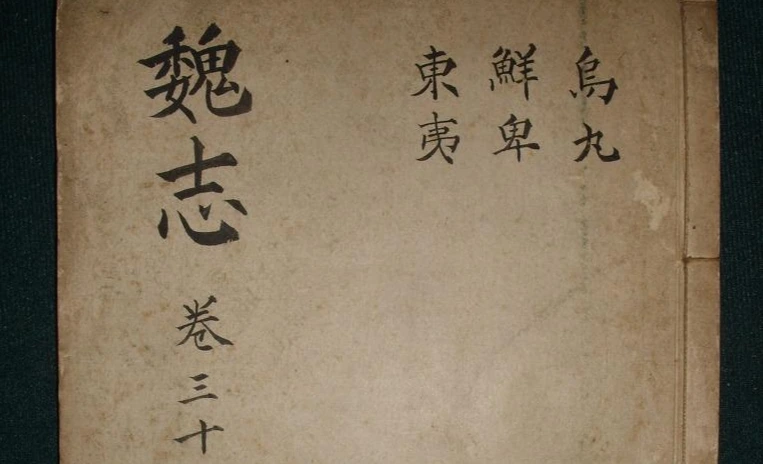 烏丸
鮮卑
東夷
魏志 卷三十